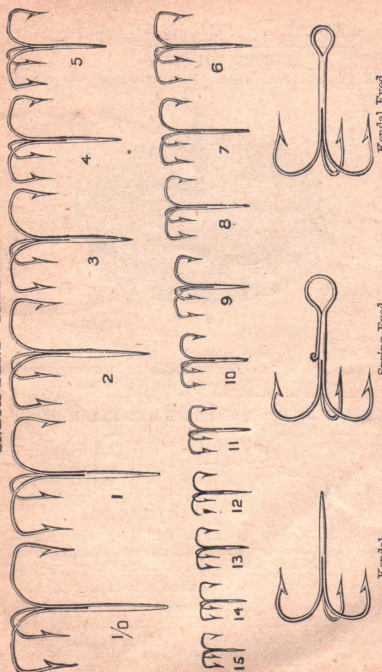 1/0 1 2 3 4 5
15 14 13 12 11 10 9 8 7 6
Kendal Spring Eyed Kendal Eyed